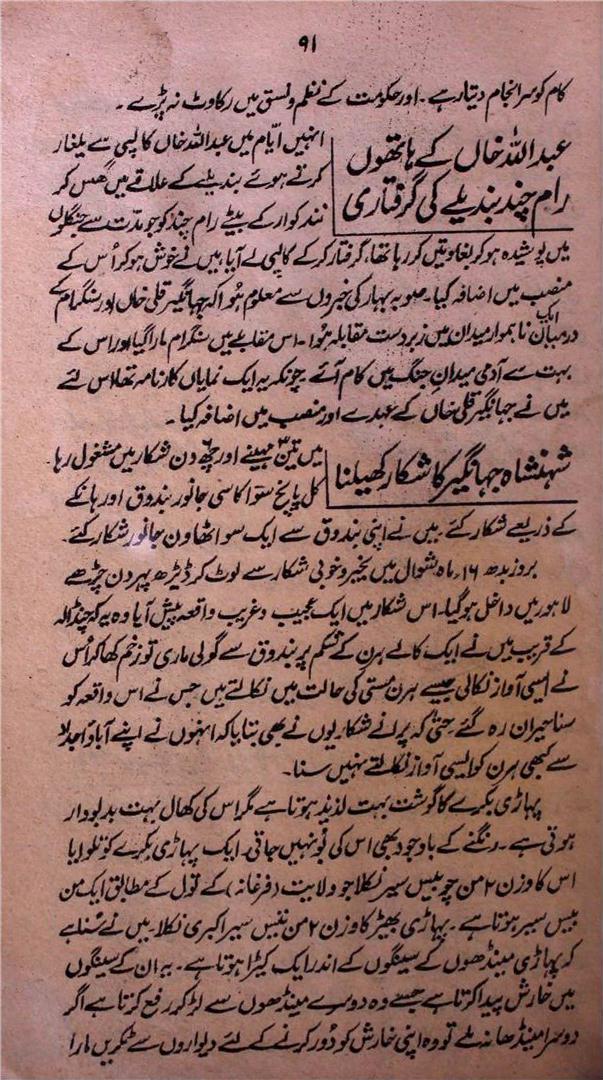 ۹۱
کام کو سرانجام دیتا رہے۔ اور حکومت کے نظم و نسق میں رکاوٹ نہ پڑے۔
عبداللہ خاں کے ہاتھوں
رام چند بندیلے کی گرفتاری
انہیں ایّام میں عبداللہ خاں کالپی سے یلغار
کرتے ہوئے بندیلے کے علاقے میں گھس کر
نندکوار کے بیٹے رام چند کو جو مدّت سے جنگلوں
میں پوشیدہ ہو کر بغاوتیں کر رہا تھا، گرفتار کر کے کالپی لے آیا۔ میں نے خوش ہو کر اُس کے
منصب میں اضافہ کیا۔ صوبہ بہار کی خبروں سے معلوم ہُوا کہ جہانگیر قلی خاں اور سنگرام کے
درمیان ایک ناہموار میدان میں زبردست مقابلہ ہُوا۔ اس مقابلے میں سنگرام مارا گیا اور اس کے
بہت سے آدمی میدانِ جنگ میں کام آئے۔ چونکہ یہ ایک نمایاں کارنامہ تھا اس لئے
میں نے جہانگیر قلی خاں کے عہدے اور منصب میں اضافہ کیا۔
شہنشاہ جہانگیر کا شکار کھیلنا
میں تین ۳ مہینے اور چھ ۶ دن شکار میں مشغول رہا
کل پانچ سو اکاسی جانور بندوق اور ہانکے
کے ذریعے شکار کئے۔ میں نے اپنی بندوق سے ایک سو اٹھاون جانور شکار کئے۔
بروز بدھ ۱۶؍ ماہ شوال میں بخیر و خوبی شکار سے لوٹ کر ڈیڑھ پہر دن چڑھے
لاہور میں داخل ہو گیا۔ اس شکار میں ایک عجیب و غریب واقعہ پیش آیا وہ یہ کہ چنڈالہ
کے قریب میں نے ایک کالے ہرن کے شکم پر بندوق سے گولی ماری تو زخم کھا کر اُس
نے ایسی آواز نکالی جیسے ہرن مستی کی حالت میں نکالتے ہیں جس نے اس واقعہ کو
سنا حیران رہ گئے۔ حتیٰ کہ پرانے شکاریوں نے بھی بتایا کہ انہوں نے اپنے آباؤ اجداد
سے کبھی ہرن کو ایسی آواز نکالتے نہیں سنا۔
پہاڑی بکرے کا گوشت بہت لذیذ ہوتا ہے مگر اس کی کھال بہت بدبودار
ہوتی ہے۔ رنگنے کے باوجود بھی اس کی بُو نہیں جاتی۔ ایک پہاڑی بکرے کو تلوایا
اس کا وزن ۲ من چوبیس سیر نکلا جو ولایت (فرغانہ) کے قول کے مطابق ایک من
بیس سیر ہوتا ہے۔ پہاڑی بھیڑ کا وزن ۲ من تیس سیر اکبری نکلا۔ میں نے سُنا ہے
کہ پہاڑی مینڈھوں کے سینگوں کے اندر ایک کیڑا ہوتا ہے۔ یہ ان کے سینگوں
میں خارش پیدا کرتا ہے جسے وہ دوسرے مینڈھوں سے لڑ کر رفع کرتا ہے اگر
دوسرا مینڈھا نہ ملے تو وہ اپنی خارش کو دُور کرنے کے لئے دیواروں سے ٹکریں مارا